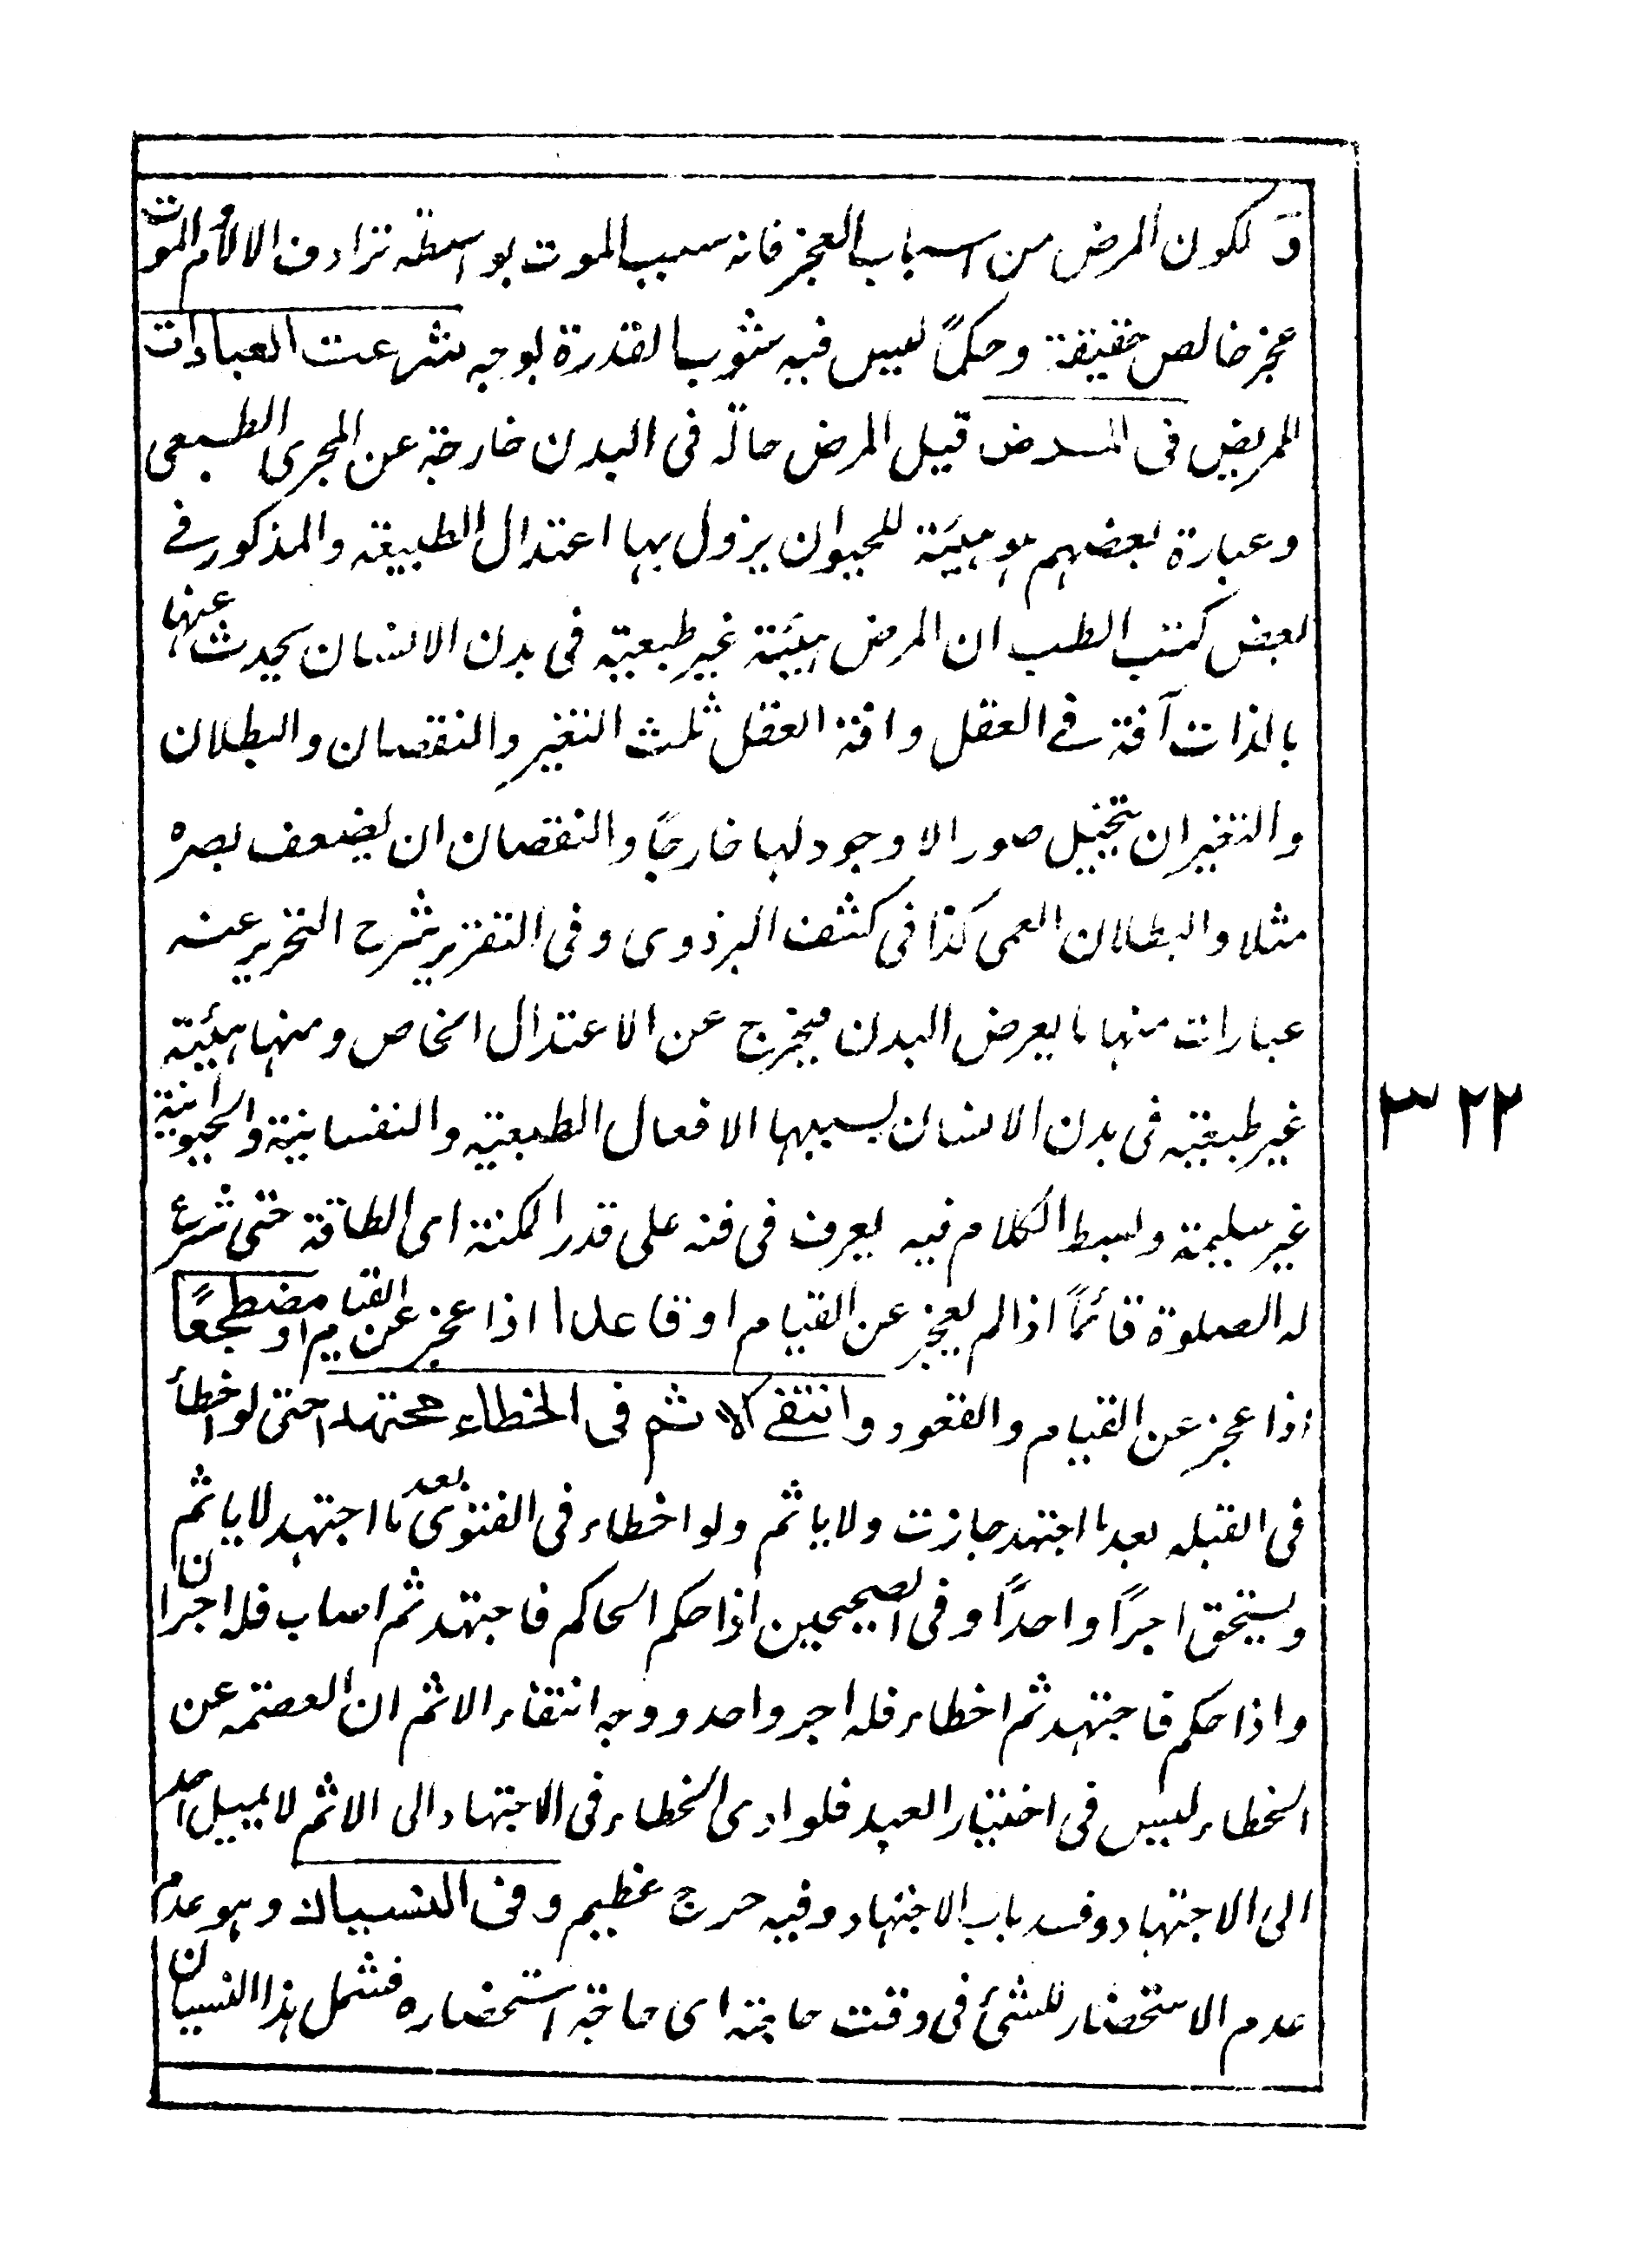 و لكون المرض من اسباب العجز فانه سبب الموت بواسطة ترادف الالام والموت
عجز خالص حقيقة وحكمًا ليس فيه شوب القدرة بوجه شرعت العبادات
للمريض فى المرض قيل المرض حالة فى البدن خارجة عن المجرى الطبيعى
وعبارة بعضهم هو هيئة للحيوان يزول بها اعتدال الطبيعة والمذكور فے
بعض كتب الطب ان المرض هيئة غير طبعية فى بدن الانسان يحدث عنها
بالذات آفة فے العقل وافة العقل ثلث التغير والنقصان والبطلان
والتغير ان يتخيل صورا لا وجود لها خارجًا والنقصان ان يضعف بصره
مثلا والبطلان العمى كذا فى كشف البزدوى وفى التقرير شرح التحرير عنه
عبارات منها ما يعرض البدن فيخرج عن الاعتدال الخاص ومنها هيئة
غير طبيعية فى بدن الانسان بسببها الافعال الطبعية والنفسانية والحيوانية
غير سليمة وبسط الكلام فيه يعرف فى فنه على قدر المكنة اى الطاقة حتى شرع
له الصلوة قائمًا اذا لم يعجز عن القيام او قاعدا اذا عجز عن القيام او مضطجعًا
اذا عجز عن القيام والقعود وانتفے الاثم فى الخطاء مجتهدا حتى لو اخطأ
فى القبله بعد ما اجتهد جازت ولا ياثم ولو اخطاء فى الفتوى بعد ما اجتهد لا ياثم
ويستحق اجرًا واحدًا وفى الصحيحين اذا حكم الحاكم فاجتهد ثم اصاب فله اجران
واذا حكم فاجتهد ثم اخطاء فله اجر واحد ووجه انتفاء الاثم ان العصمة عن
الخطاء ليس فى اختيار العبد فلو ادى الخطاء فى الاجتهاد الى الاثم لا يميل احد
الى الاجتهاد وفسد باب الاجتهاد وفيه حرج عظيم وفى النسيان وهو عدم
عدم الاستحضار للشئ فى وقت حاجته اى حاجة استحضاره فشمل هذا النسيان
٣٢٢